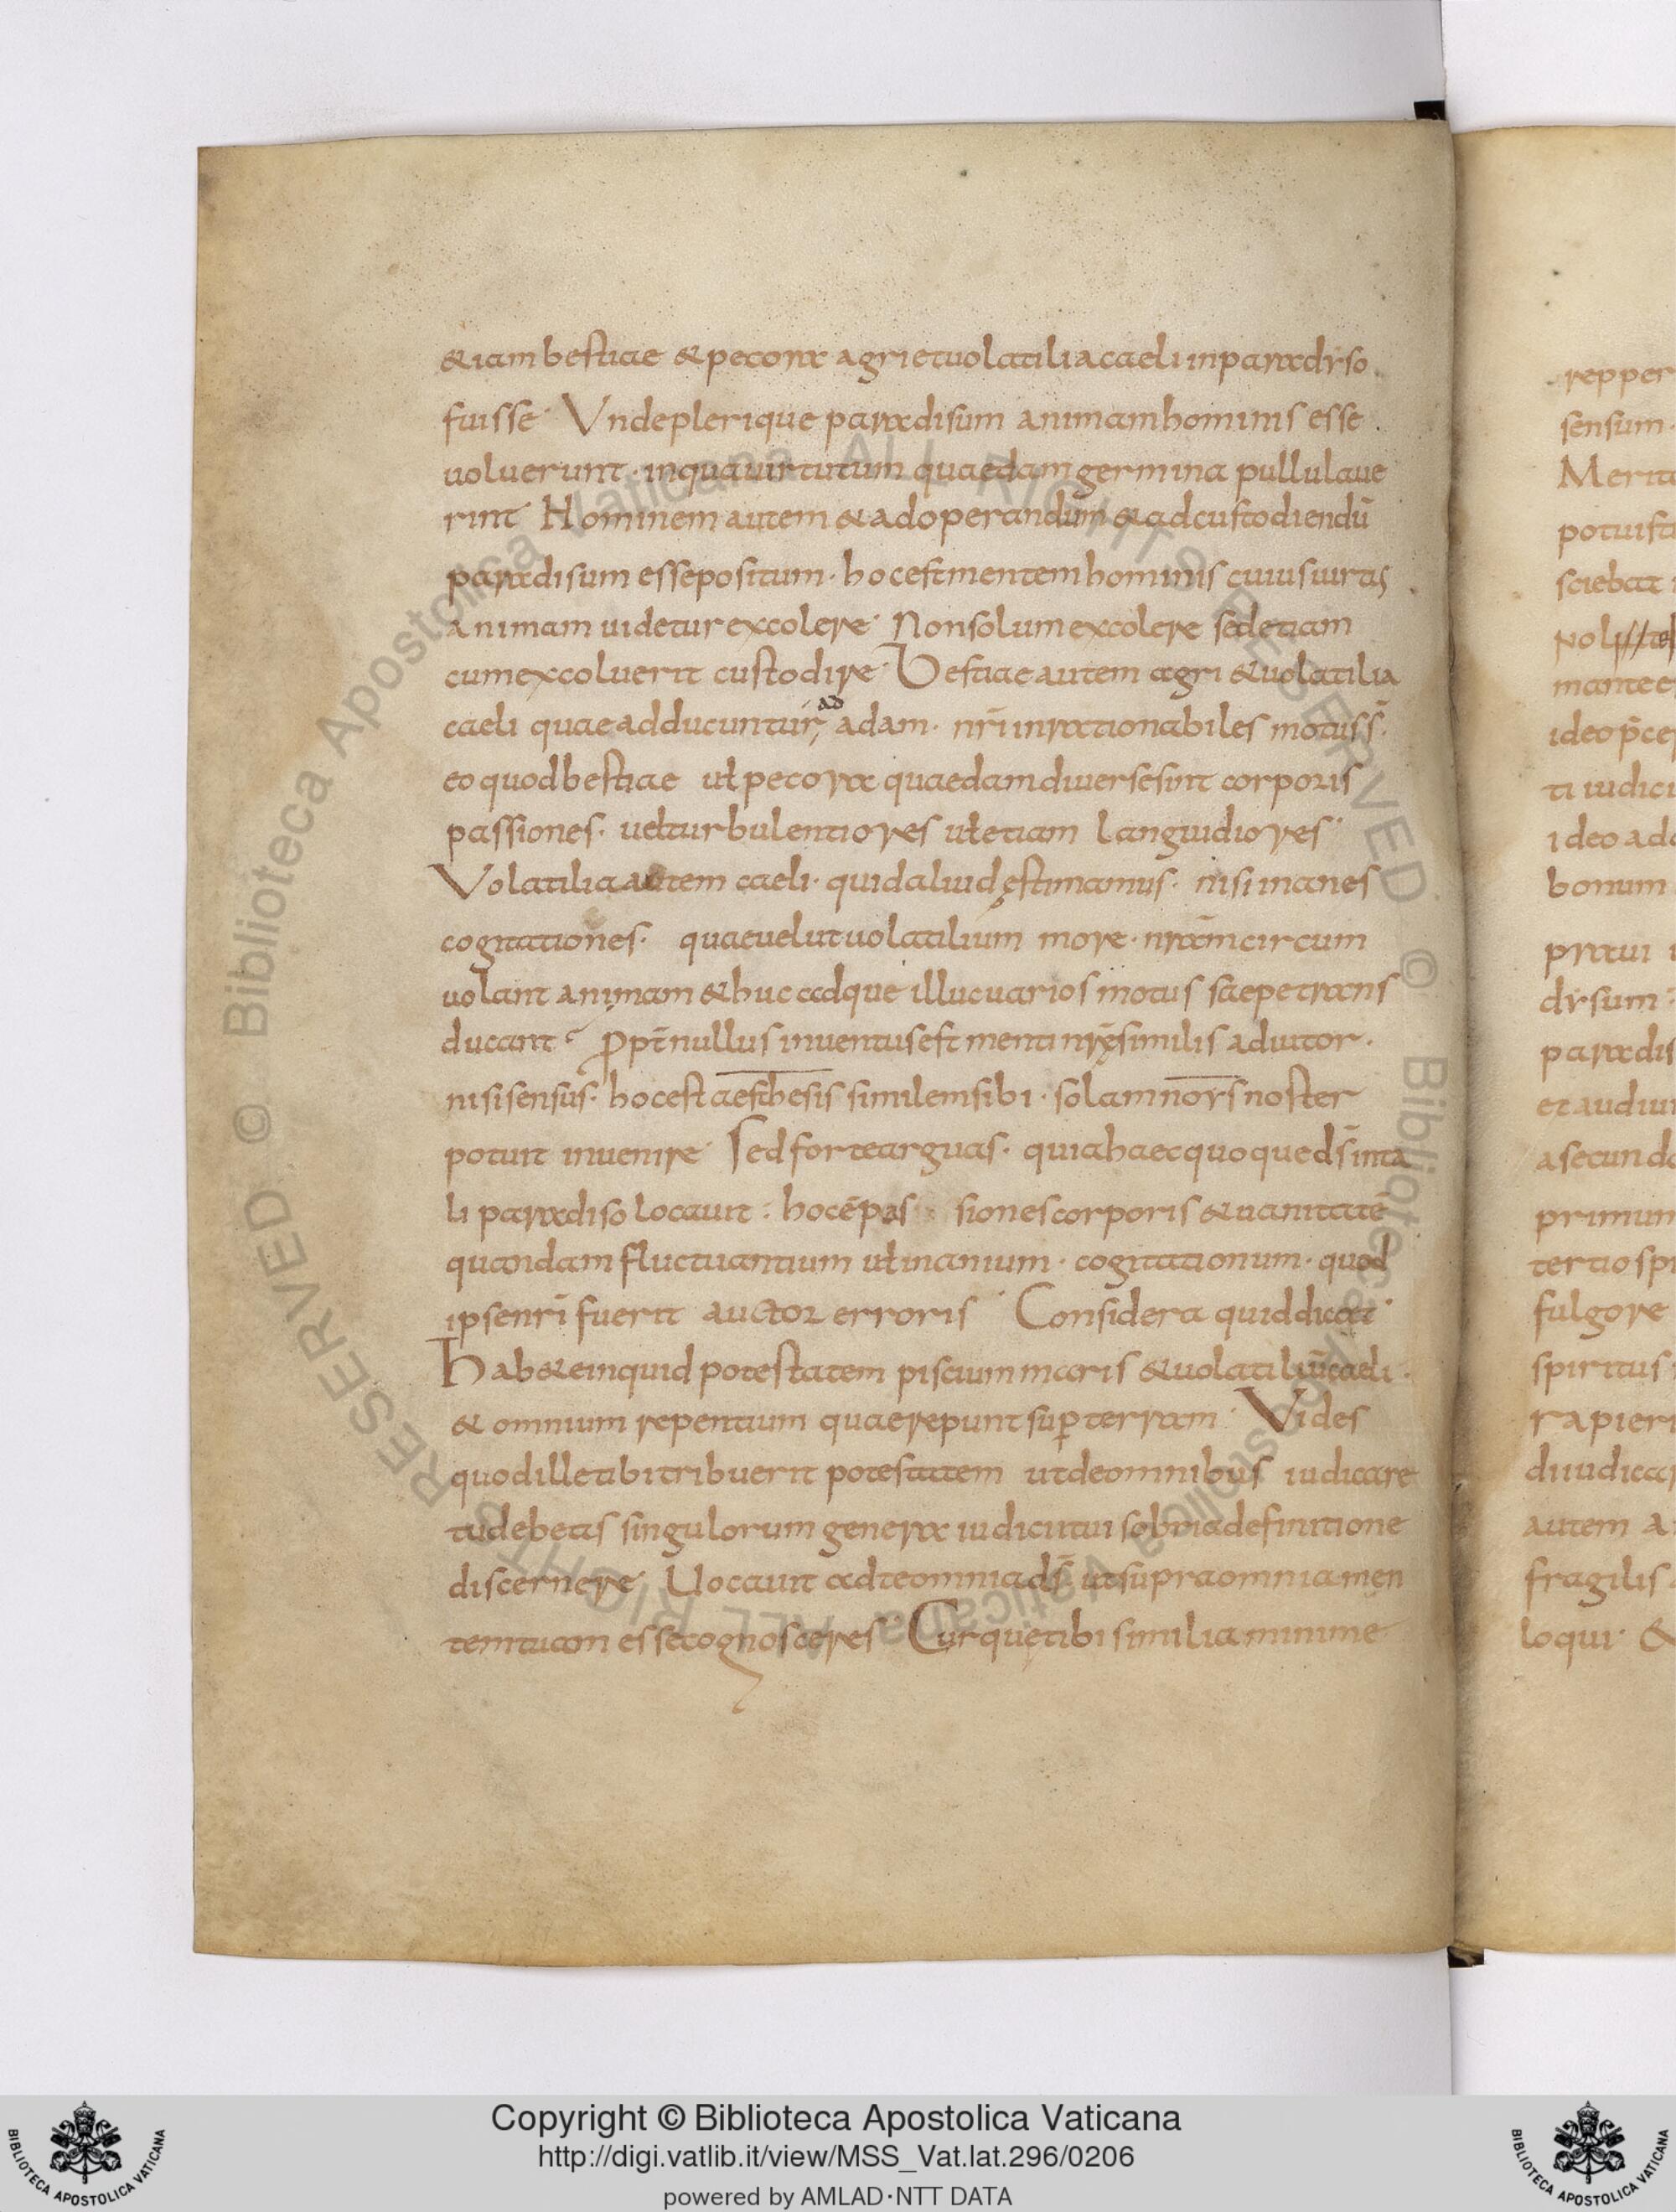 &iam bestiae & pecora agri et uolatilia caeli in paradyso
fuisse· Vnde plerique paradisum animam hominis esse
uoluerunt· in qua uirtutum quaedam germina pullulaue
rint Hominem autem & ad operandum & ad custodiendū
paradisum esse positum· hoc est mentem hominis cuius uirtus
animam uidetur excolere· Non solum excolere sed etiam
cum excoluerit custodire· Bestiae autem agri & uolatilia
caeli quae adducuntur, ad adam· nr̄i inrationabiles motus s̄·
eo quod bestiae uł pecora quaedam diuersae sint corporis
passiones· uel turbulentiores uł etiam languidiores·
Volatilia autem caeli· quid aliud ęstimamus· nisi inanes
cogitationes· quae uelut uolatilium more· nr̄am circum
uolant animam & huc adque illuc uarios motus saepe trans
ducant· Propt̄ nullus inuentus est menti nr̄ę similis adiutor·
nisi sensus· hoc est aesthesis similem sibi· solam noys noster
potuit inuenire· Sed forte arguas· quia haec quoque ds̄ in ta
li paradiso locauit: hoc ē pas siones corporis & uanitatē
quandam fluctuantium uł inanium· cogitationum· quod
ipse nr̄i fuerit auctor erroris· Considera quid dicat·
Hab& e inquid potestatem piscium maris & uolatiliū caeli·
& omnium repentium quae repunt sup terram· Vides
quod ille tibi tribuerit potestatem ut de omnibus iudicare
tu debeas singulorum genera iudicii tui sobria definitione
discernere· Uocauit ad te omnia ds̄ ut supra omnia men
tem tuam esse cognosceres· Cur quę tibi similia minime
repper
sensum·
Merita
potuist
sciebat
mante e
ideo p̄ce
ti iudici
ideo ad
bonum
praui
dysum·
paradis
et audiui
a secundo
primum
tertio spi
fulgore
spiritus
rapieri
diiudica
autem a
fragilis
loqui· &
© Biblioteca Apostolica Vaticana ALL RIGHTS RESERVED © Biblioteca Apostolica Vaticana ALL RIGHTS RESERVED
Copyright © Biblioteca Apostolica Vaticana
http://digi.vatlib.it/view/MSS_Vat.lat.296/0206
powered by AMLAD·NTT DATA
BIBLIOTECA APOSTOLICA VATICANA
BIBLIOTECA APOSTOLICA VATICANA